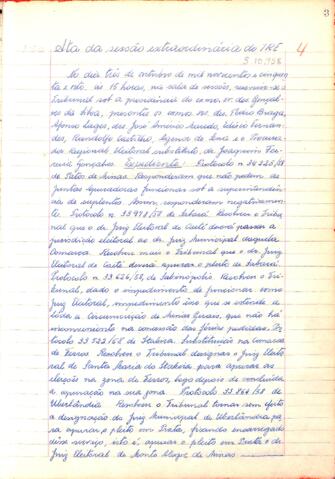 3
Ata da sessão extraordinária do TRE 4
3.10.958
No dia três de outubro de mil novecentos e cinquen
ta e oito, às 15 horas, na sala de sessões, reuniu-se o
Tribunal sob a presidência do exmo. sr. des. Gonçal
ves da Silva, presentes os exmos. srs. drs. Pedro Braga,
Afonso Lages, des. José Américo Macedo, Edésio Fernan
des, Randolfo Castilho, e o Procura
dor Regional Eleitoral substituto, dr. Joaquim Fer
reira Gonçalves. Expediente: Protocolo n. 34.225/58
de Patos de Minas. Responderam que não podem as
Juntas Apuradoras funcionar sob a superintendên
cia de suplentes. responderam negativamen
te. Protocolo n. 33.978/58 de Sabará. Resolveu o Tribu
nal que o dr. Juiz Eleitoral de Caeté deverá passar a
jurisdição eleitoral ao dr. Juiz Municipal daquela
Comarca. Resolveu mais o Tribunal que o dr. Juiz
Eleitoral de Caeté deverá apurar o pleito de Sabará.
Protocolo n. 33.626/58, de Sabinópolis. Resolveu o Tri
bunal, dado o impedimento de funcionar como
Juiz Eleitoral, impedimento esse que se estende a
toda a Circunscrição de Minas Gerais, que não há
inconveniente na concessão das férias pedidas. Pro
tocolo 33.522/58 de Itabira. Substituição na comarca
de Ferros. Resolveu o Tribunal designar o Juiz Eleito
ral de Santa Maria do Itabira para apurar as
eleições na zona de Ferros, logo depois de concluída
a apuração na sua zona. Protocolo 33.864/58 de
Uberlândia. Resolveu o Tribunal tornar sem efeito
a designação do Juiz Municipal de Uberlândia pa
ra apurar o pleito em Prata, ficando encarregado
desse serviço, isto é, apurar o pleito em Prata o dr.
Juiz Eleitoral de Monte Alegre de Minas